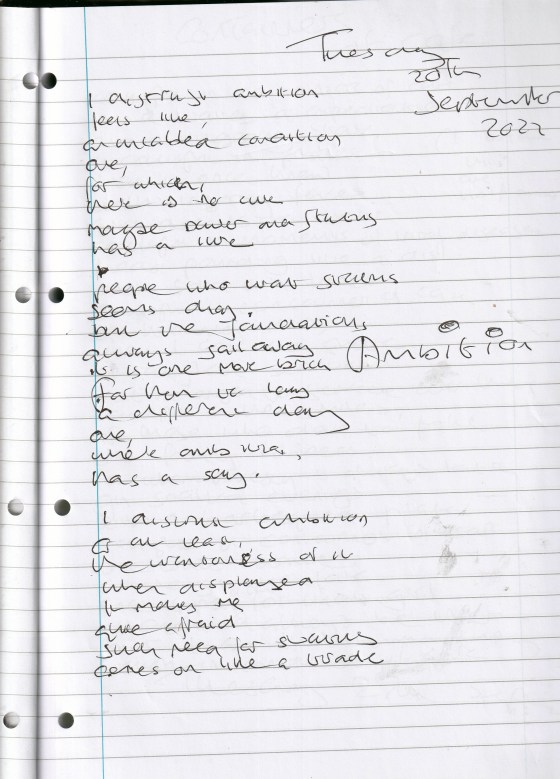 Tuesday
20th
September
2022
I distrust ambition
feels like,
an condition
one,
for which,
there is no cure
maybe power and status
has a cure
people who want success
seems okay
but the foundations
always fall away
Ambition
it is one more brick
for him to lay
a different day
one,
where ambition,
has a say.
I distrust ambition
or at least,
the of it
when displayed
It makes me
quite afraid
such need for success
comes on like a